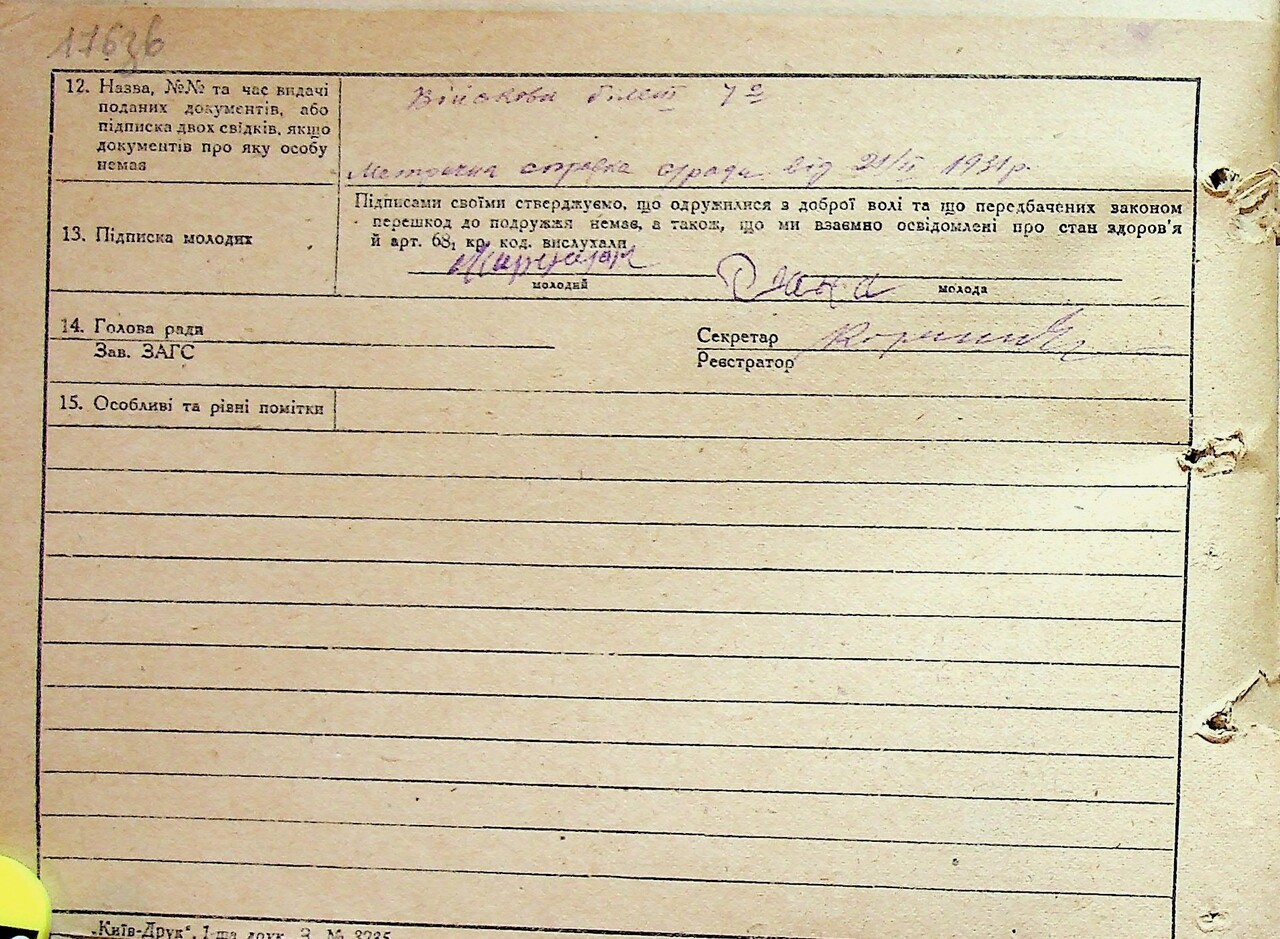 176зв
12. Назва, №№ та час видачі
поданих документів, або
підписка двох свідків, якщо
документів про яку особу
немає
Військови білет
Метрична справка сради від 21/II 1931р.
13. Підписка молодих
Підписами своїми стверджуємо, що одружилися з доброї волі та що передбачених законом
перешкод до подружжя немає, а також, що ми взаємно освідомлені про стан здоров'я
й арт. 68₁ кр. код. вислухали
молодий
молода
14. Голова ради
Зав. ЗАГС
Секретар
Реєстратор
15. Особливі та рівні помітки
„Київ-Друк“, 1-ша друк. З. № 3235